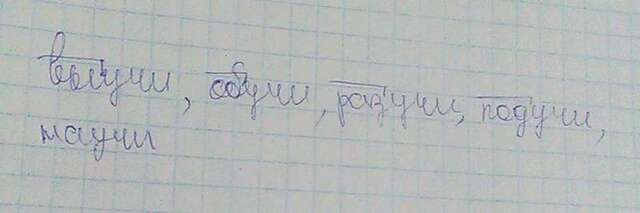 выучи, обучи, разучи, подучи,
научи